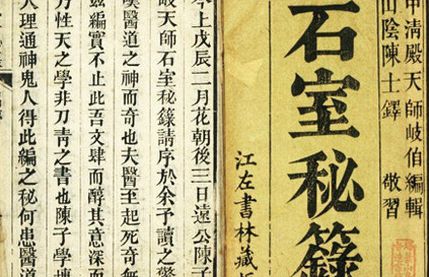 中清殿天師岐伯編輯
山陰陳士鐸 敬習
石室秘籙
江左書林藏
水上戊辰二月花朝後三日遠公陳子
岐天師石室秘籙請序於余予讀之驚
醫道之神而奇也夫醫至起死奇無
茲編實不止此吾文肆而醇其意深而
性天之學非刀青之書也陳子學
人理通神鬼人得此編之秘何患醫道